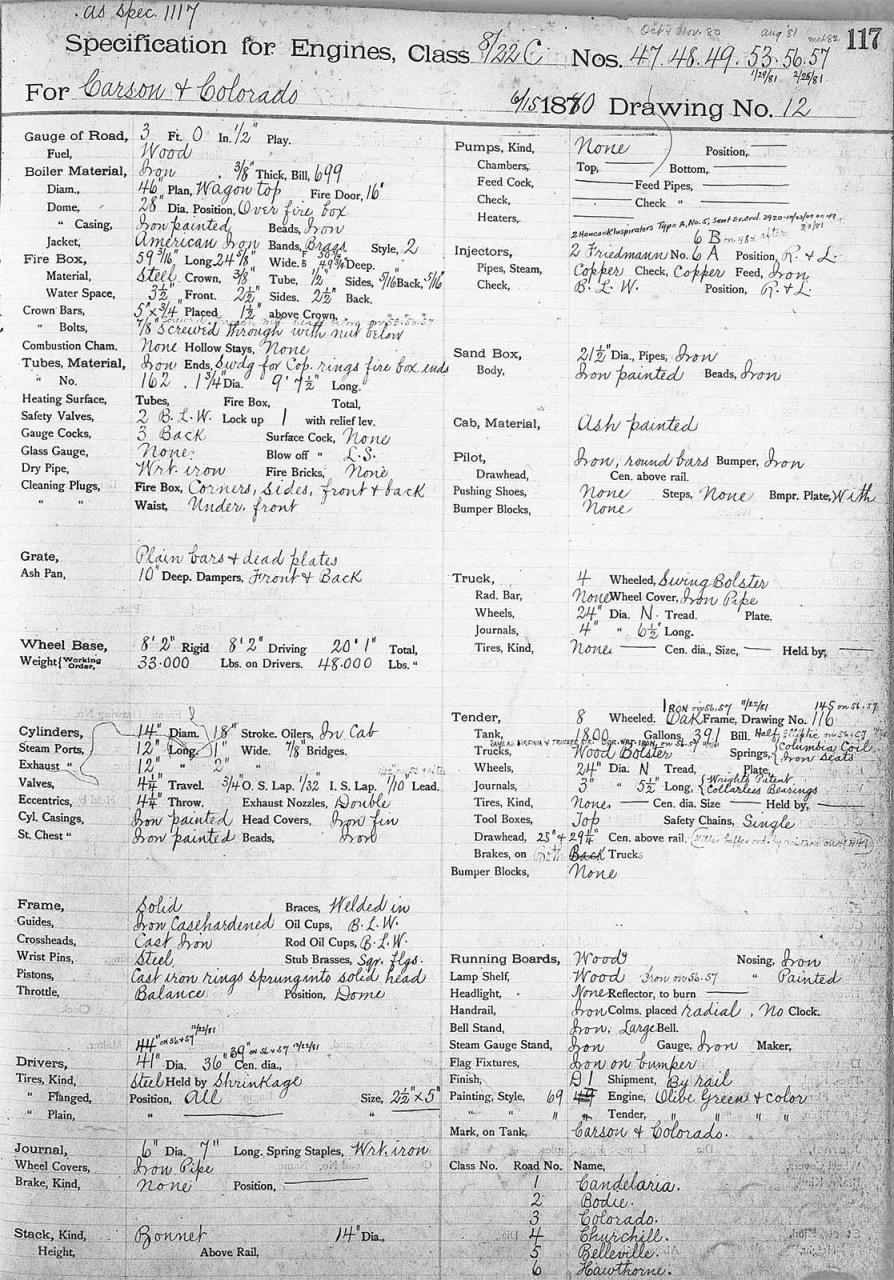 as spec. 1117
Oct & Nov. 80 aug '81 mch 82
Specification for Engines, Class 8/22 C Nos. 47. 48. 49. 53. 56. 57 117
1/29/81 2/25/81
For Carson & Colorado 6/15 1880 Drawing No. 12
Gauge of Road, 3 Ft. 0 In. 1/2" Play.
Fuel, Wood
Boiler Material, Iron 3/8" Thick, Bill, 699
Diam., 46" Plan, Wagon top Fire Door, 16"
Dome, 28" Dia. Position, Over fire box
" Casing, Iron painted Beads, Iron
Jacket, American Iron Bands, Brass Style, 2
Fire Box, 59 3/16" Long 24 5/8" Wide. F 50 3/4" B 49 3/4" Deep.
Material, Steel Crown, 3/8" Tube, 1/2" Sides, 5/16" Back, 5/16"
Water Space, 3 1/2" Front. 2 1/2" Sides. 2 1/2" Back.
Crown Bars, 5" x 3/4" Placed 1 1/2" above Crown,
" Bolts, 7/8" Screwed through with nut below
Combustion Cham. None Hollow Stays, None
Tubes, Material, Iron Ends, Swdg for Cop. rings fire box ends
" No. 162 . 1 3/4" Dia. 9' 7 1/2" Long.
Heating Surface, Tubes, Fire Box, Total,
Safety Valves, 2 B. L. W. Lock up 1 with relief lev.
Gauge Cocks, 3 Back Surface Cock, None
Glass Gauge, None. Blow off " L.S.
Dry Pipe, Wrt. iron Fire Bricks, None
Cleaning Plugs, Fire Box, Corners, sides, front & back
" " Waist, Under front
Grate, Plain bars & dead plates
Ash Pan, 10" Deep. Dampers, Front & Back
Wheel Base, 8' 2" Rigid 8' 2" Driving 20' 1" Total,
Weight { Working Order, 33.000 Lbs. on Drivers. 48.000 Lbs. "
Cylinders, 14" Diam. 18" Stroke. Oilers, In Cab
Steam Ports, 12" Long, 1" Wide. 7/8" Bridges.
Exhaust " 12" " 2" "
Valves, 4 1/4" Travel. 3/4" O. S. Lap. 1/32" I. S. Lap. 1/10" Lead.
Eccentrics, 4 1/4" Throw. Exhaust Nozzles, Double
Cyl. Casings, Iron painted Head Covers, Iron fin
St. Chest " Iron painted Beads, Iron
Frame, Solid Braces, Welded in
Guides, Iron Casehardened Oil Cups, B. L. W.
Crossheads, Cast Iron Rod Oil Cups, B. L. W.
Wrist Pins, Steel, Stub Brasses, Sqr. flgs.
Pistons, Cast iron rings sprung into solid head
Throttle, Balance Position, Dome
44" on 56 & 57 12/22/81 39" on 56 & 57 12/22/81
Drivers, 41" Dia. 36" Cen. dia.,
Tires, Kind, Steel Held by Shrinkage
" Flanged, Position, All Size, 2 1/2" x 5"
" Plain, " "
Journal, 6" Dia. 7" Long. Spring Staples, Wrt. iron
Wheel Covers, Iron Pipe
Brake, Kind, None Position,
Stack, Kind, Bonnet 14" Dia.,
Height, Above Rail,
Pumps, Kind, None Position,
Chambers, Top, Bottom,
Feed Cock, Feed Pipes,
Check, Check "
Heaters,
2 Hancock Inspirators Type A, No. 5, Sent
6 B on 48 & after
Injectors, 2 Friedmann No. 6 A Position, R. & L.
Pipes, Steam, Copper Check, Copper Feed, Iron
Check, B. L. W. Position, R & L.
Sand Box, 21 1/2" Dia., Pipes, Iron
Body, Iron painted Beads, Iron
Cab, Material, Ash painted
Pilot, Iron, round bars Bumper, Iron
Drawhead, Cen. above rail.
Pushing Shoes, None Steps, None Bmpr. Plate, With
Bumper Blocks, None
Truck, 4 Wheeled, Swing Bolster
Rad. Bar, None Wheel Cover, Iron Pipe
Wheels, 24" Dia. N. Tread. Plate.
Journals, 4" " 6 1/2" Long.
Tires, Kind, None Cen. dia., Size, Held by,
Iron on 56.57 11/22/81 145 on 56.57
Tender, 8 Wheeled. Oak Frame, Drawing No. 116
Tank, 1800 Gallons, 391 Bill. Half elliptic on 56.57
Trucks, Wood Bolster Springs, { Columbia Coil Iron Seats
Wheels, 24" Dia. N Tread, Plate,
Journals, 3" " 5 1/2" Long, { Wright's Patent Collarless Bearings
Tires, Kind, None. Cen. dia. Size Held by,
Tool Boxes, Top Safety Chains, Single
Drawhead, 25" & 29 1/4" Cen. above rail.
Brakes, on Both Back Trucks
Bumper Blocks, None
Running Boards, Wood Nosing, Iron
Lamp Shelf, Wood Iron on 56.57 " Painted
Headlight, None Reflector, to burn
Handrail, Iron Colms. placed radial. No Clock.
Bell Stand, Iron. Large Bell.
Steam Gauge Stand, Iron Gauge, Iron Maker,
Flag Fixtures, Iron on bumper
Finish, D 1 Shipment, By rail
Painting, Style, 69 Engine, Olive Green & color
" " " Tender, " " "
Mark, on Tank, Carson & Colorado.
Class No. Road No. Name,
1 Candelaria.
2 Bodie.
3 Colorado.
4 Churchill.
5 Belleville.
6 Hawthorne.